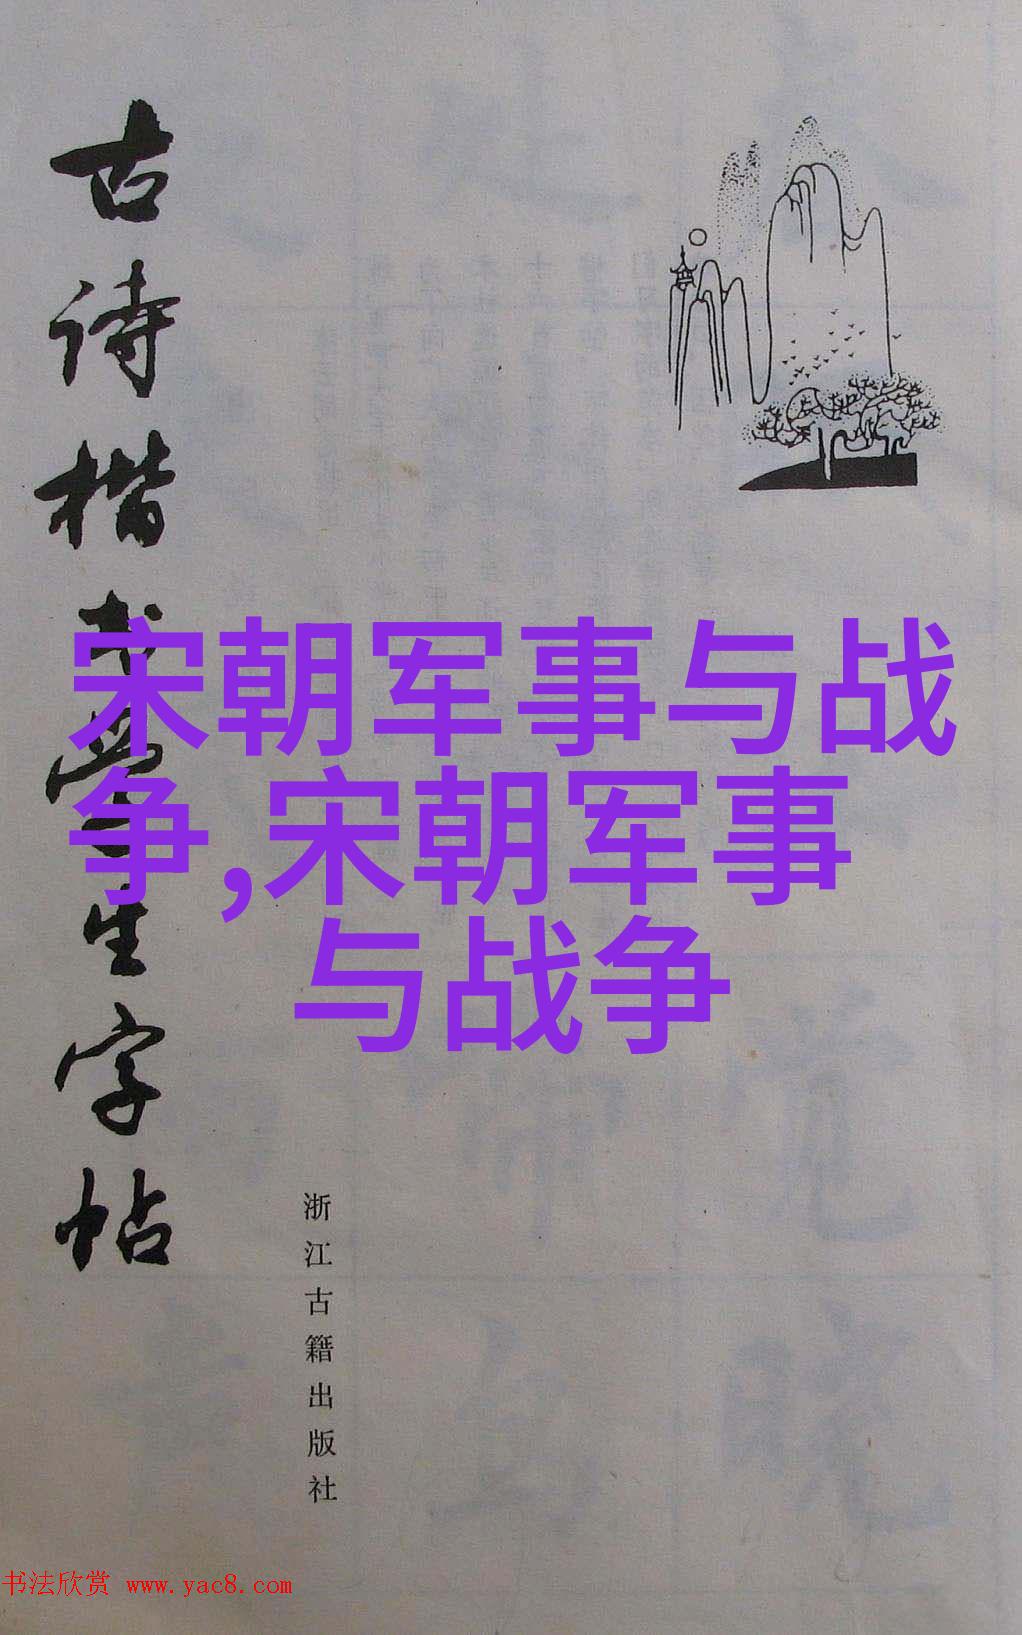 古诗楷书学生字帖
宋朝军事与战
争,宋朝军事
与战争
浙江古籍出版社
书法欣赏 www.yac8.com